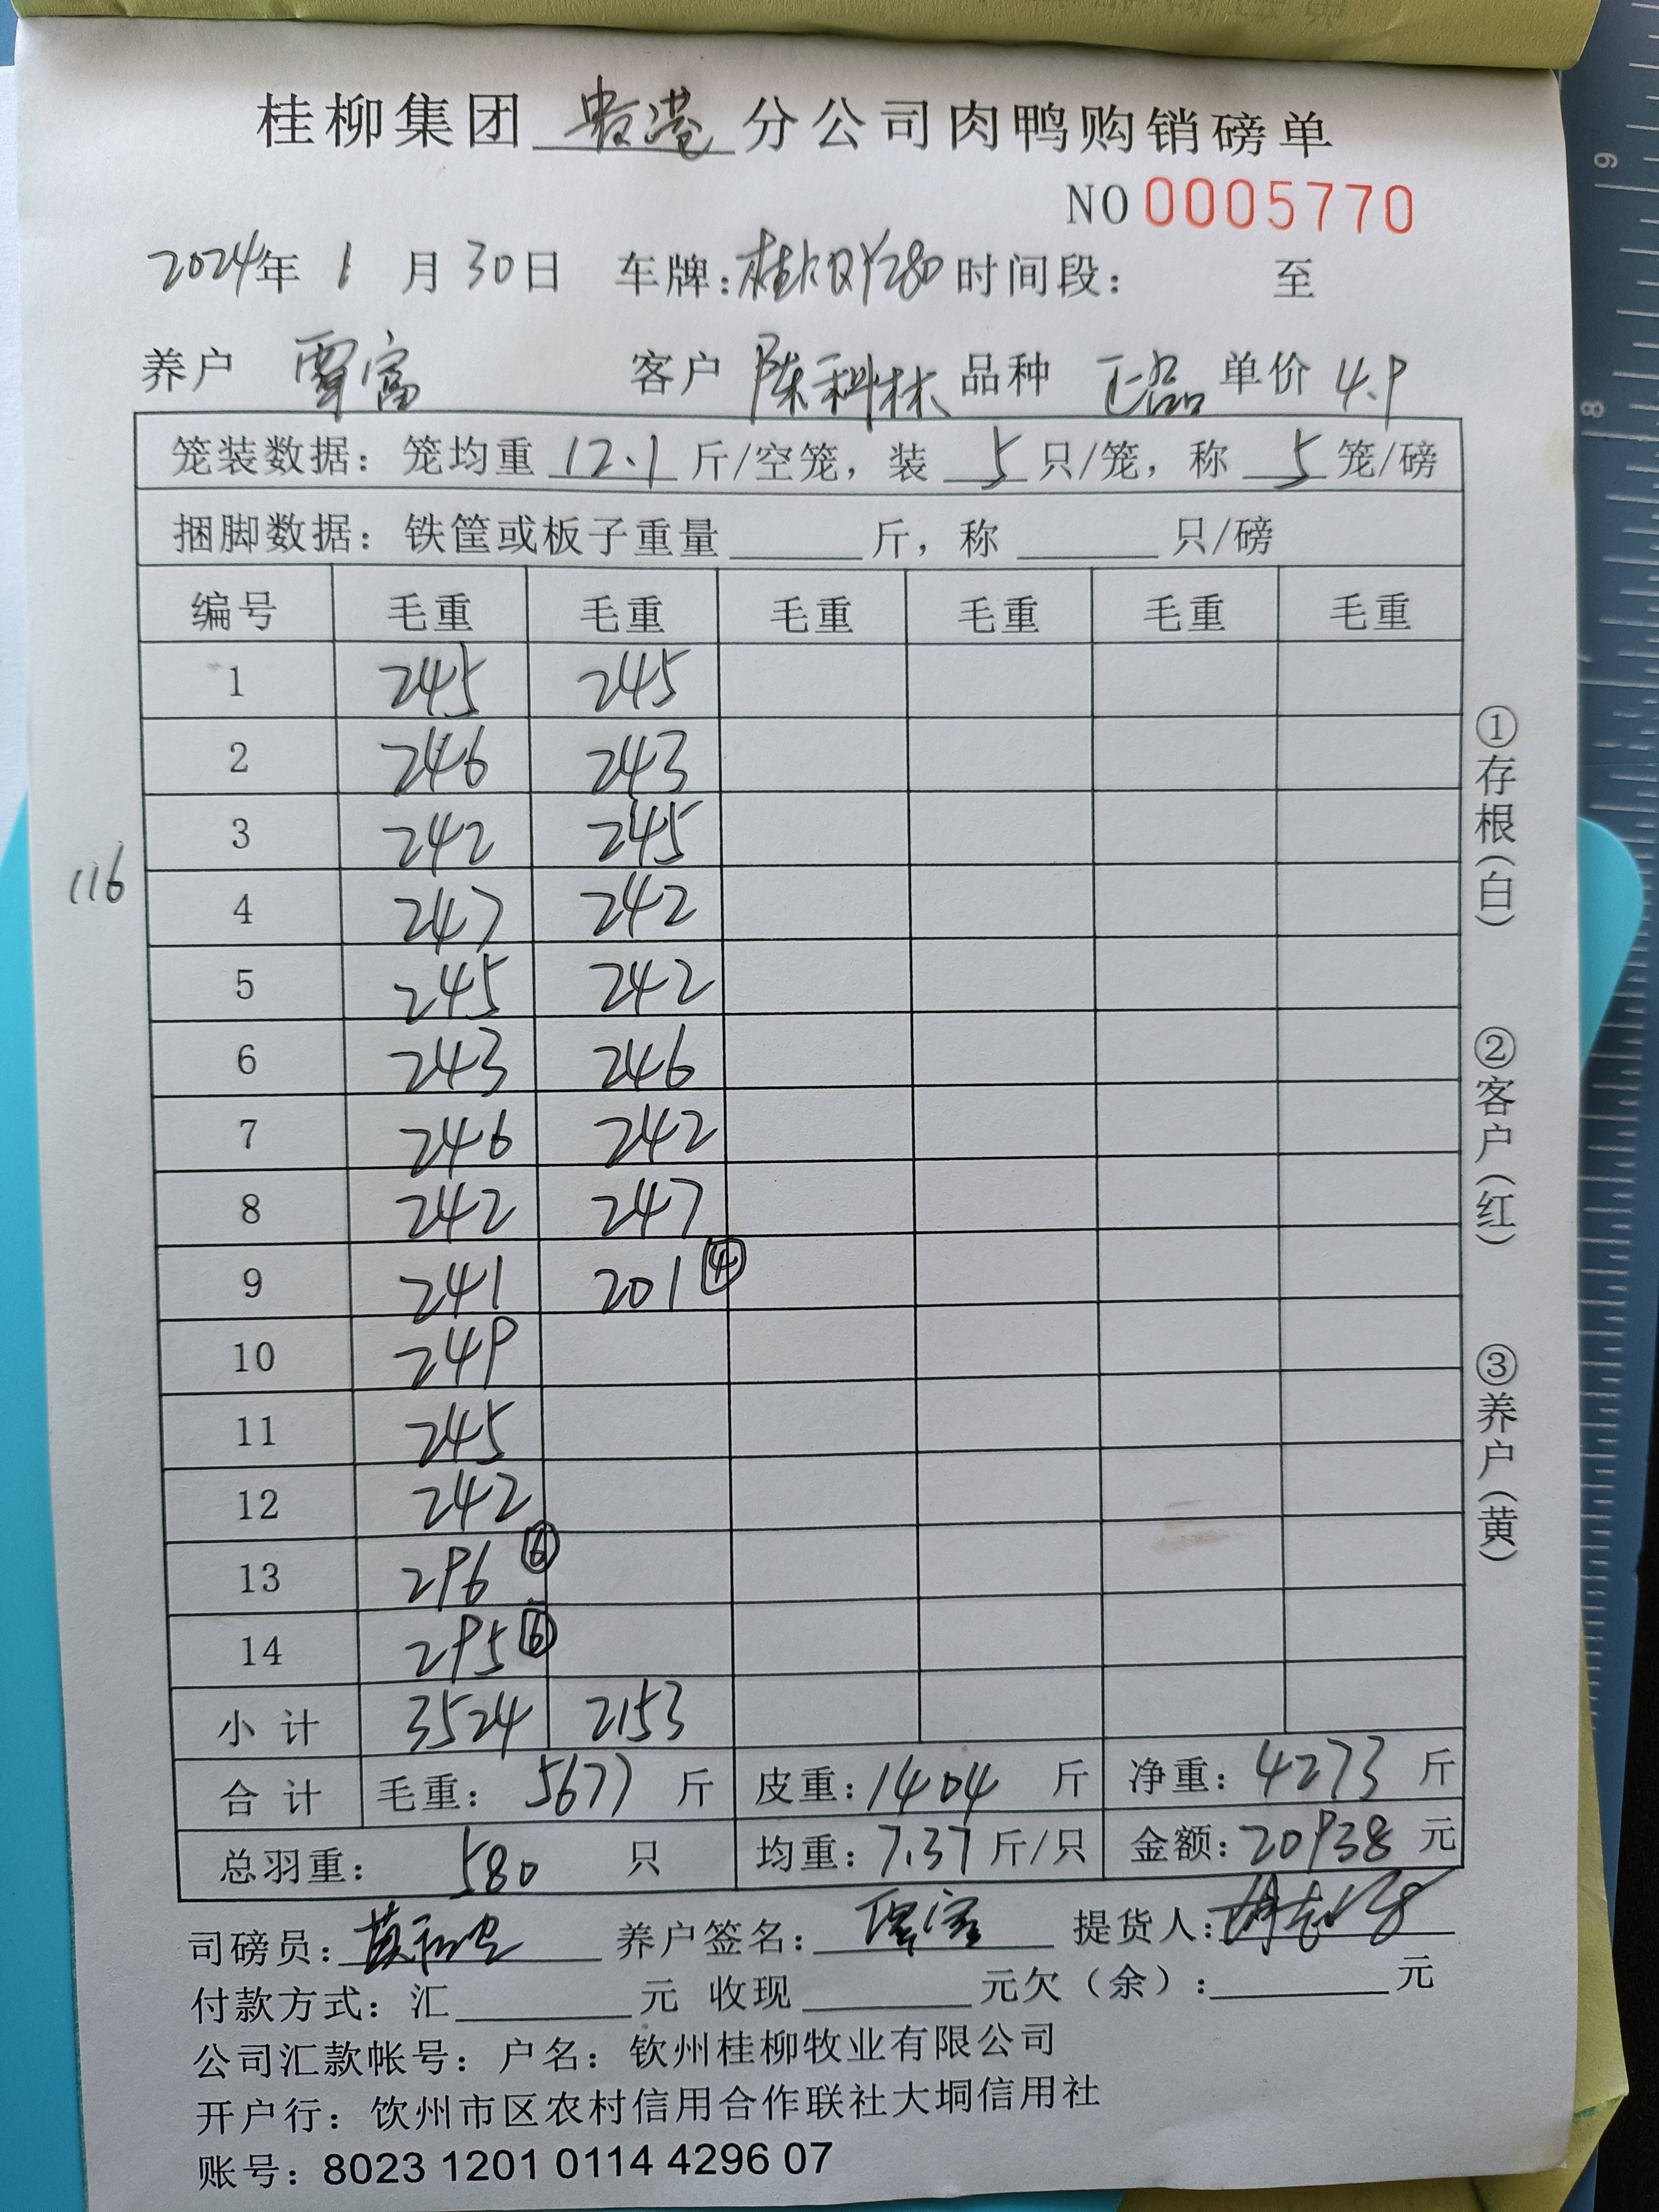 桂柳集团 贵港 分公司肉鸭购销磅单
NO 0005770
2024年 1 月 30日 车牌: 时间段： 至
养户 覃富 客户 陈科林 品种 正品 单价 4.9
笼装数据：笼均重 12.1 斤/空笼，装 5 只/笼，称 5 笼/磅
捆脚数据：铁筐或板子重量 斤，称 只/磅
编号 毛重 毛重 毛重 毛重 毛重 毛重
1 245 245
2 246 243
3 242 245
116
4 247 242
5 245 242
6 243 246
7 246 242
8 242 247
9 241 201 ④
10 249
11 245
12 242
13 296 ⑥
14 295 ⑥
小计 3524 2153
合计 毛重：5677 斤 皮重：1404 斤 净重：4273 斤
总羽重： 580 只 均重：7.37 斤/只 金额：20938 元
司磅员： 养户签名：覃富 提货人：
付款方式：汇 元 收现 元欠（余）： 元
公司汇款帐号：户名：钦州桂柳牧业有限公司
开户行：饮州市区农村信用合作联社大垌信用社
账号：8023 1201 0114 4296 07
①存根（白）
②客户（红）
③养户（黄）